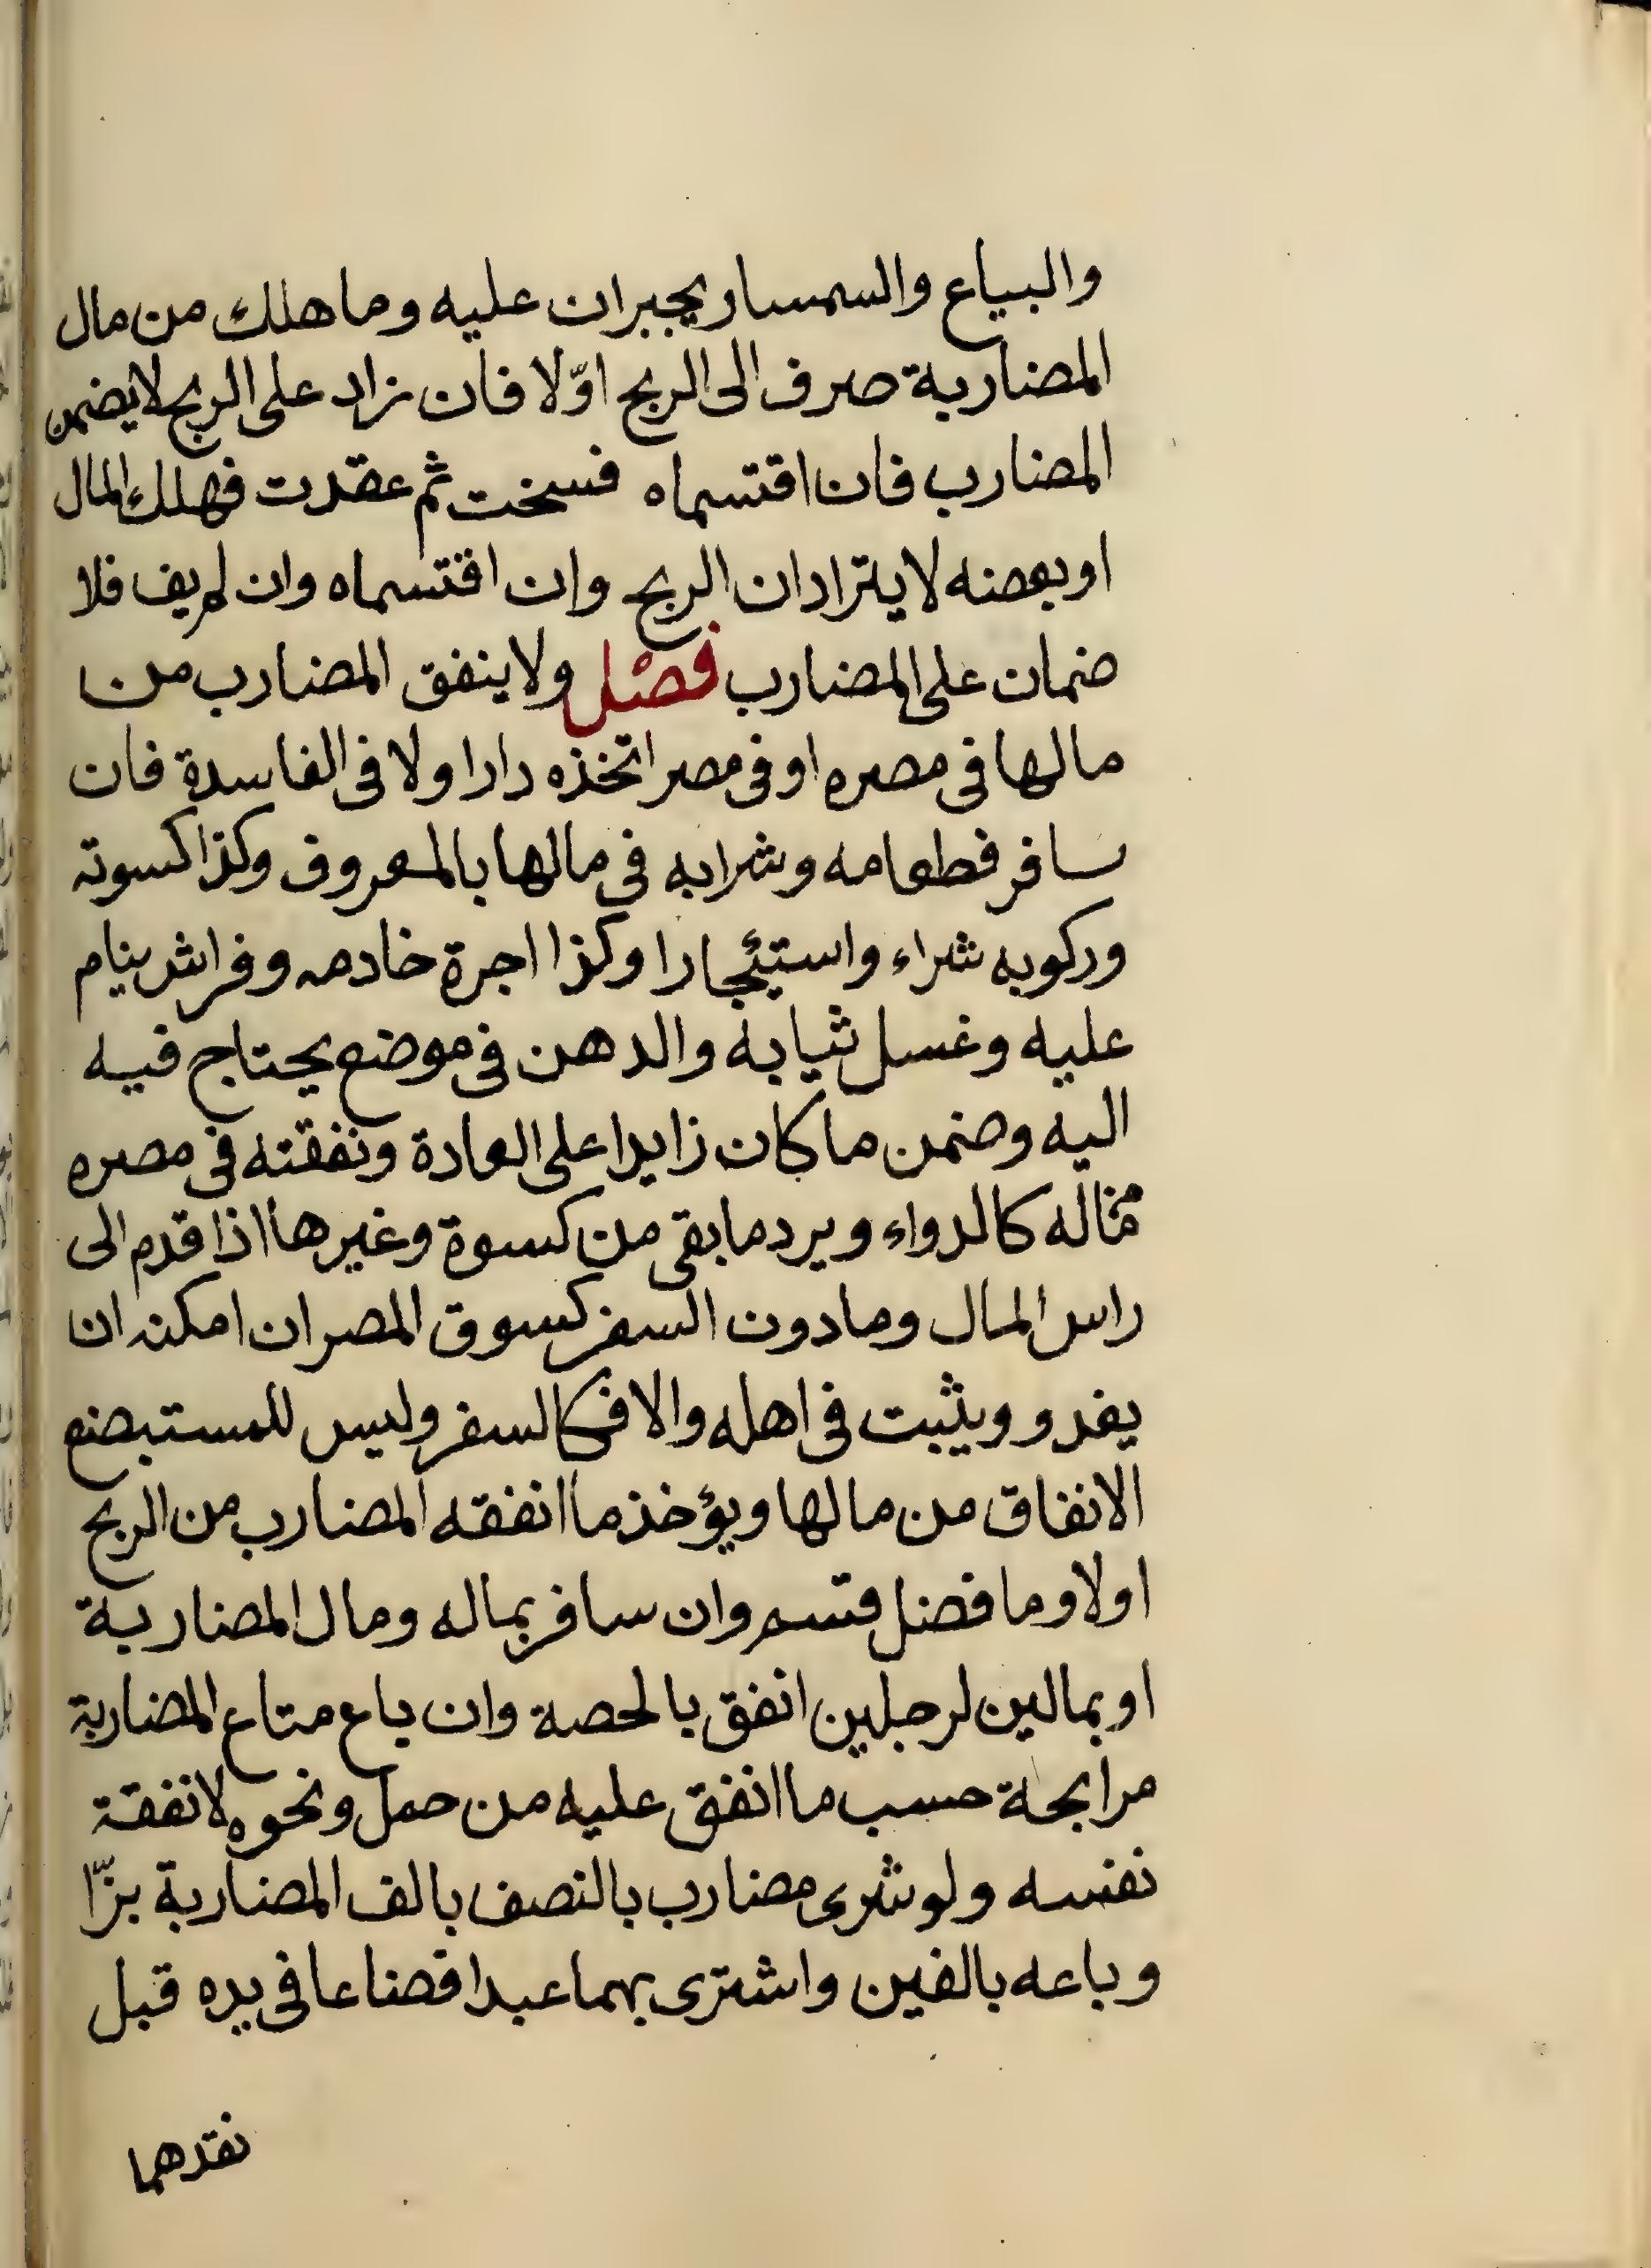 والبياع والسمسار يجبران عليه وما هلك من مال
المضاربة صرف الى الربح اوّلا فان زاد على الربح لايضمن
المضارب فان اقتسماه فسخت ثم عقدت فهلك المال
او بعضه لا يترادان الربح وان اقتسماه وان لم يف فلا
ضمان على المضارب فصل ولا ينفق المضارب من
مالها فى مصره او فى مصر اتخذه دارا ولا فى الفاسدة فان
سافر فطعامه وشرابه فى مالها بالمعروف وكذا كسوته
وركوبه شراء واستئجارا وكذا اجرة خادمه وفراش ينام
عليه وغسل ثيابه والدهن فى موضع يحتاج فيه
اليه وضمن ما كان زايدا على العادة ونفقته فى مصره
من ماله كالدواء ويرد ما بقى من كسوة وغيرها اذا قدم الى
راس المال وما دون السفر كسوق المصر ان امكنه ان
يغدو ويثبت فى اهله والا فكالسفر وليس للمستبضع
الانفاق من مالها ويؤخذ ما انفقه المضارب من الربح
اولا وما فضل قسم وان سافر بماله ومال المضاربة
او بمالين لرجلين انفق بالحصة وان باع متاع المضاربة
مرابحة حسب ما انفق عليه من حمل ونحوه لا نفقة
نفسه ولو شرى مضارب بالنصف بالف المضاربة بزّا
وباعه بالفين واشترى بهما عبدا فضاعا فى يده قبل
نقدهما